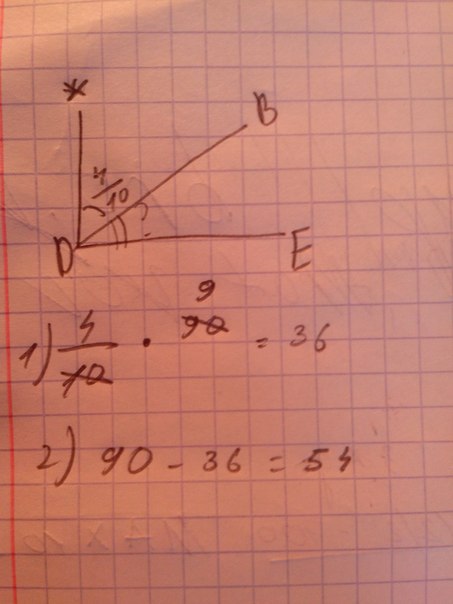 Ж
B
4/10
?
D
E
1) 4/10 · 90 9 = 36
2) 90 - 36 = 54